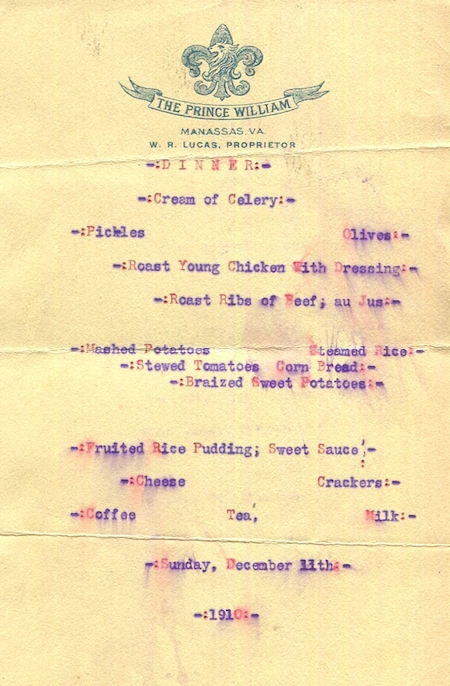 THE PRINCE WILLIAM
MANASSAS, VA.
W. R. LUCAS, PROPRIETOR
-:DINNER:-
-:Cream of Celery:-
-:Pickles Olives:-
-:Roast Young Chicken With Dressing:-
-:Roast Ribs of Beef; au Jus:-
-:Mashed Potatoes Steamed Rice:-
-:Stewed Tomatoes Corn Bread:-
-:Braized Sweet Potatoes:-
-:Fruited Rice Pudding; Sweet Sauce;-
-:Cheese Crackers:-
-:Coffee Tea, Milk:-
-:Sunday, December 11th:-
-:1910:-